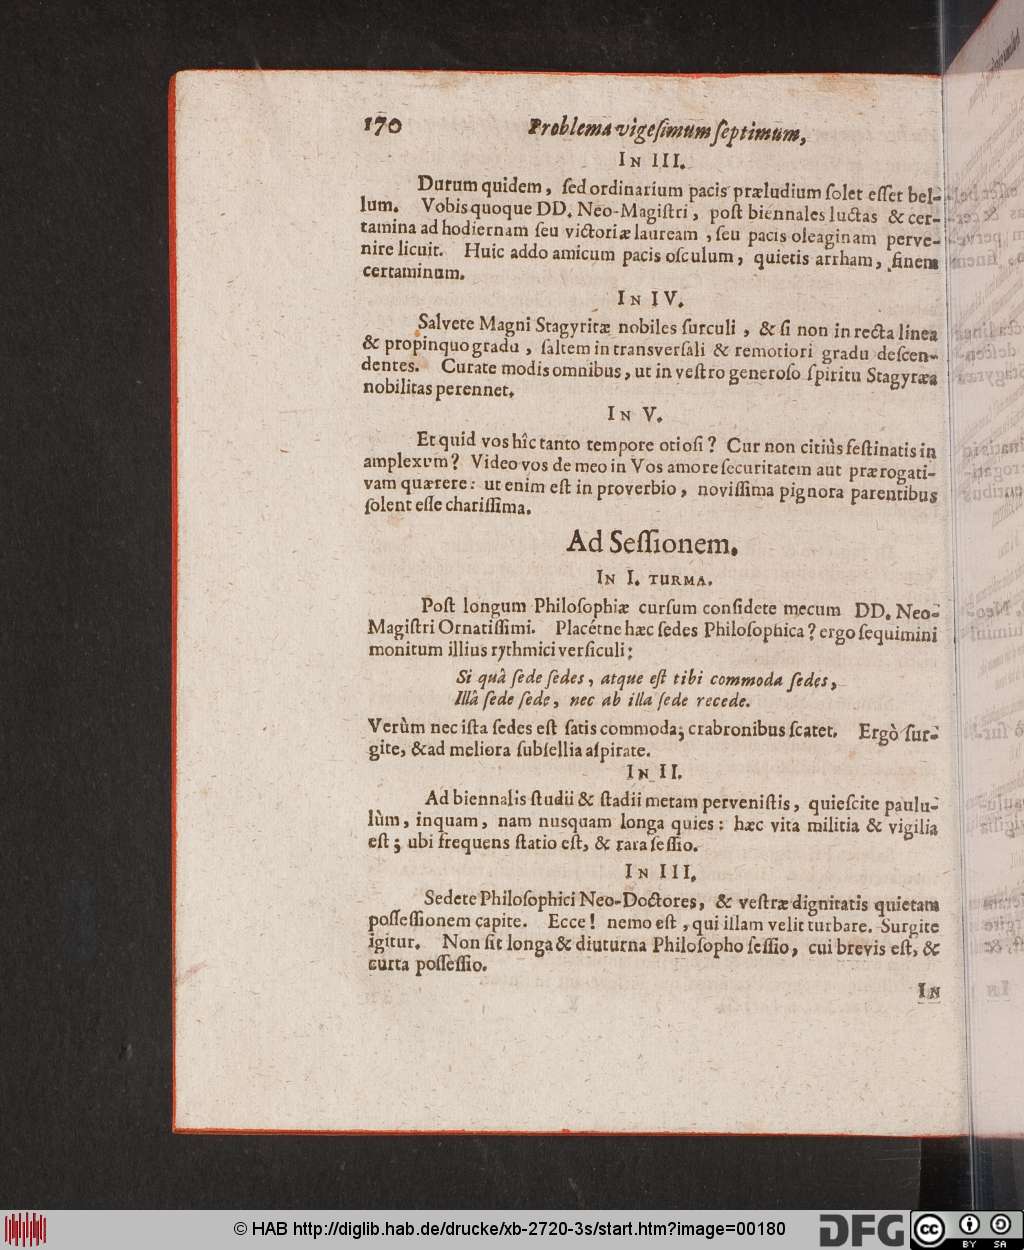 170 Problema vigeſimum ſeptimum,
IN III.
Durum quidem, ſed ordinarium pacis præludium ſolet eſſet bel-
lum. Vobis quoque DD. Neo-Magiſtri, poſt biennales luctas & cer-
tamina ad hodiernam ſeu victoriæ lauream, ſeu pacis oleaginam perve-
nire licuit. Huic addo amicum pacis oſculum, quietis arrham, finem
certaminum.
IN IV.
Salvete Magni Stagyritæ nobiles ſurculi, & ſi non in recta linea
& propinquo gradu, ſaltem in transverſali & remotiori gradu deſcen-
dentes. Curate modis omnibus, ut in veſtro generoſo ſpiritu Stagyræa
nobilitas perennet.
IN V.
Et quid vos hîc tanto tempore otioſi? Cur non citiùs feſtinatis in
amplexum? Video vos de meo in Vos amore ſecuritatem aut prærogati-
vam quærere: ut enim eſt in proverbio, noviſſima pignora parentibus
ſolent eſſe chariſſima.
Ad Seſſionem.
IN I. TURMA.
Poſt longum Philoſophiæ curſum conſidete mecum DD. Neo-
Magiſtri Ornatiſſimi. Placétne hæc ſedes Philoſophica? ergo ſequimini
monitum illius rythmici verſiculi:
Si quâ ſede ſedes, atque eſt tibi commoda ſedes,
Illâ ſede ſede, nec ab illa ſede recede.
Verùm nec iſta ſedes eſt ſatis commoda; crabronibus ſcatet. Ergò ſur-
gite, & ad meliora ſubſellia aſpirate.
IN II.
Ad biennalis ſtudii & ſtadii metam perveniſtis, quieſcite paulu-
lùm, inquam, nam nusquam longa quies: hæc vita militia & vigilia
eſt; ubi frequens ſtatio eſt, & rara ſeſſio.
IN III.
Sedete Philoſophici Neo-Doctores, & veſtræ dignitatis quietam
poſſeſſionem capite. Ecce! nemo eſt, qui illam velit turbare. Surgite
igitur. Non ſit longa & diuturna Philoſopho ſeſſio, cui brevis eſt, &
curta poſſeſſio.
IN
© HAB http://diglib.hab.de/drucke/xb-2720-3s/start.htm?image=00180
DFG
cc BY SA